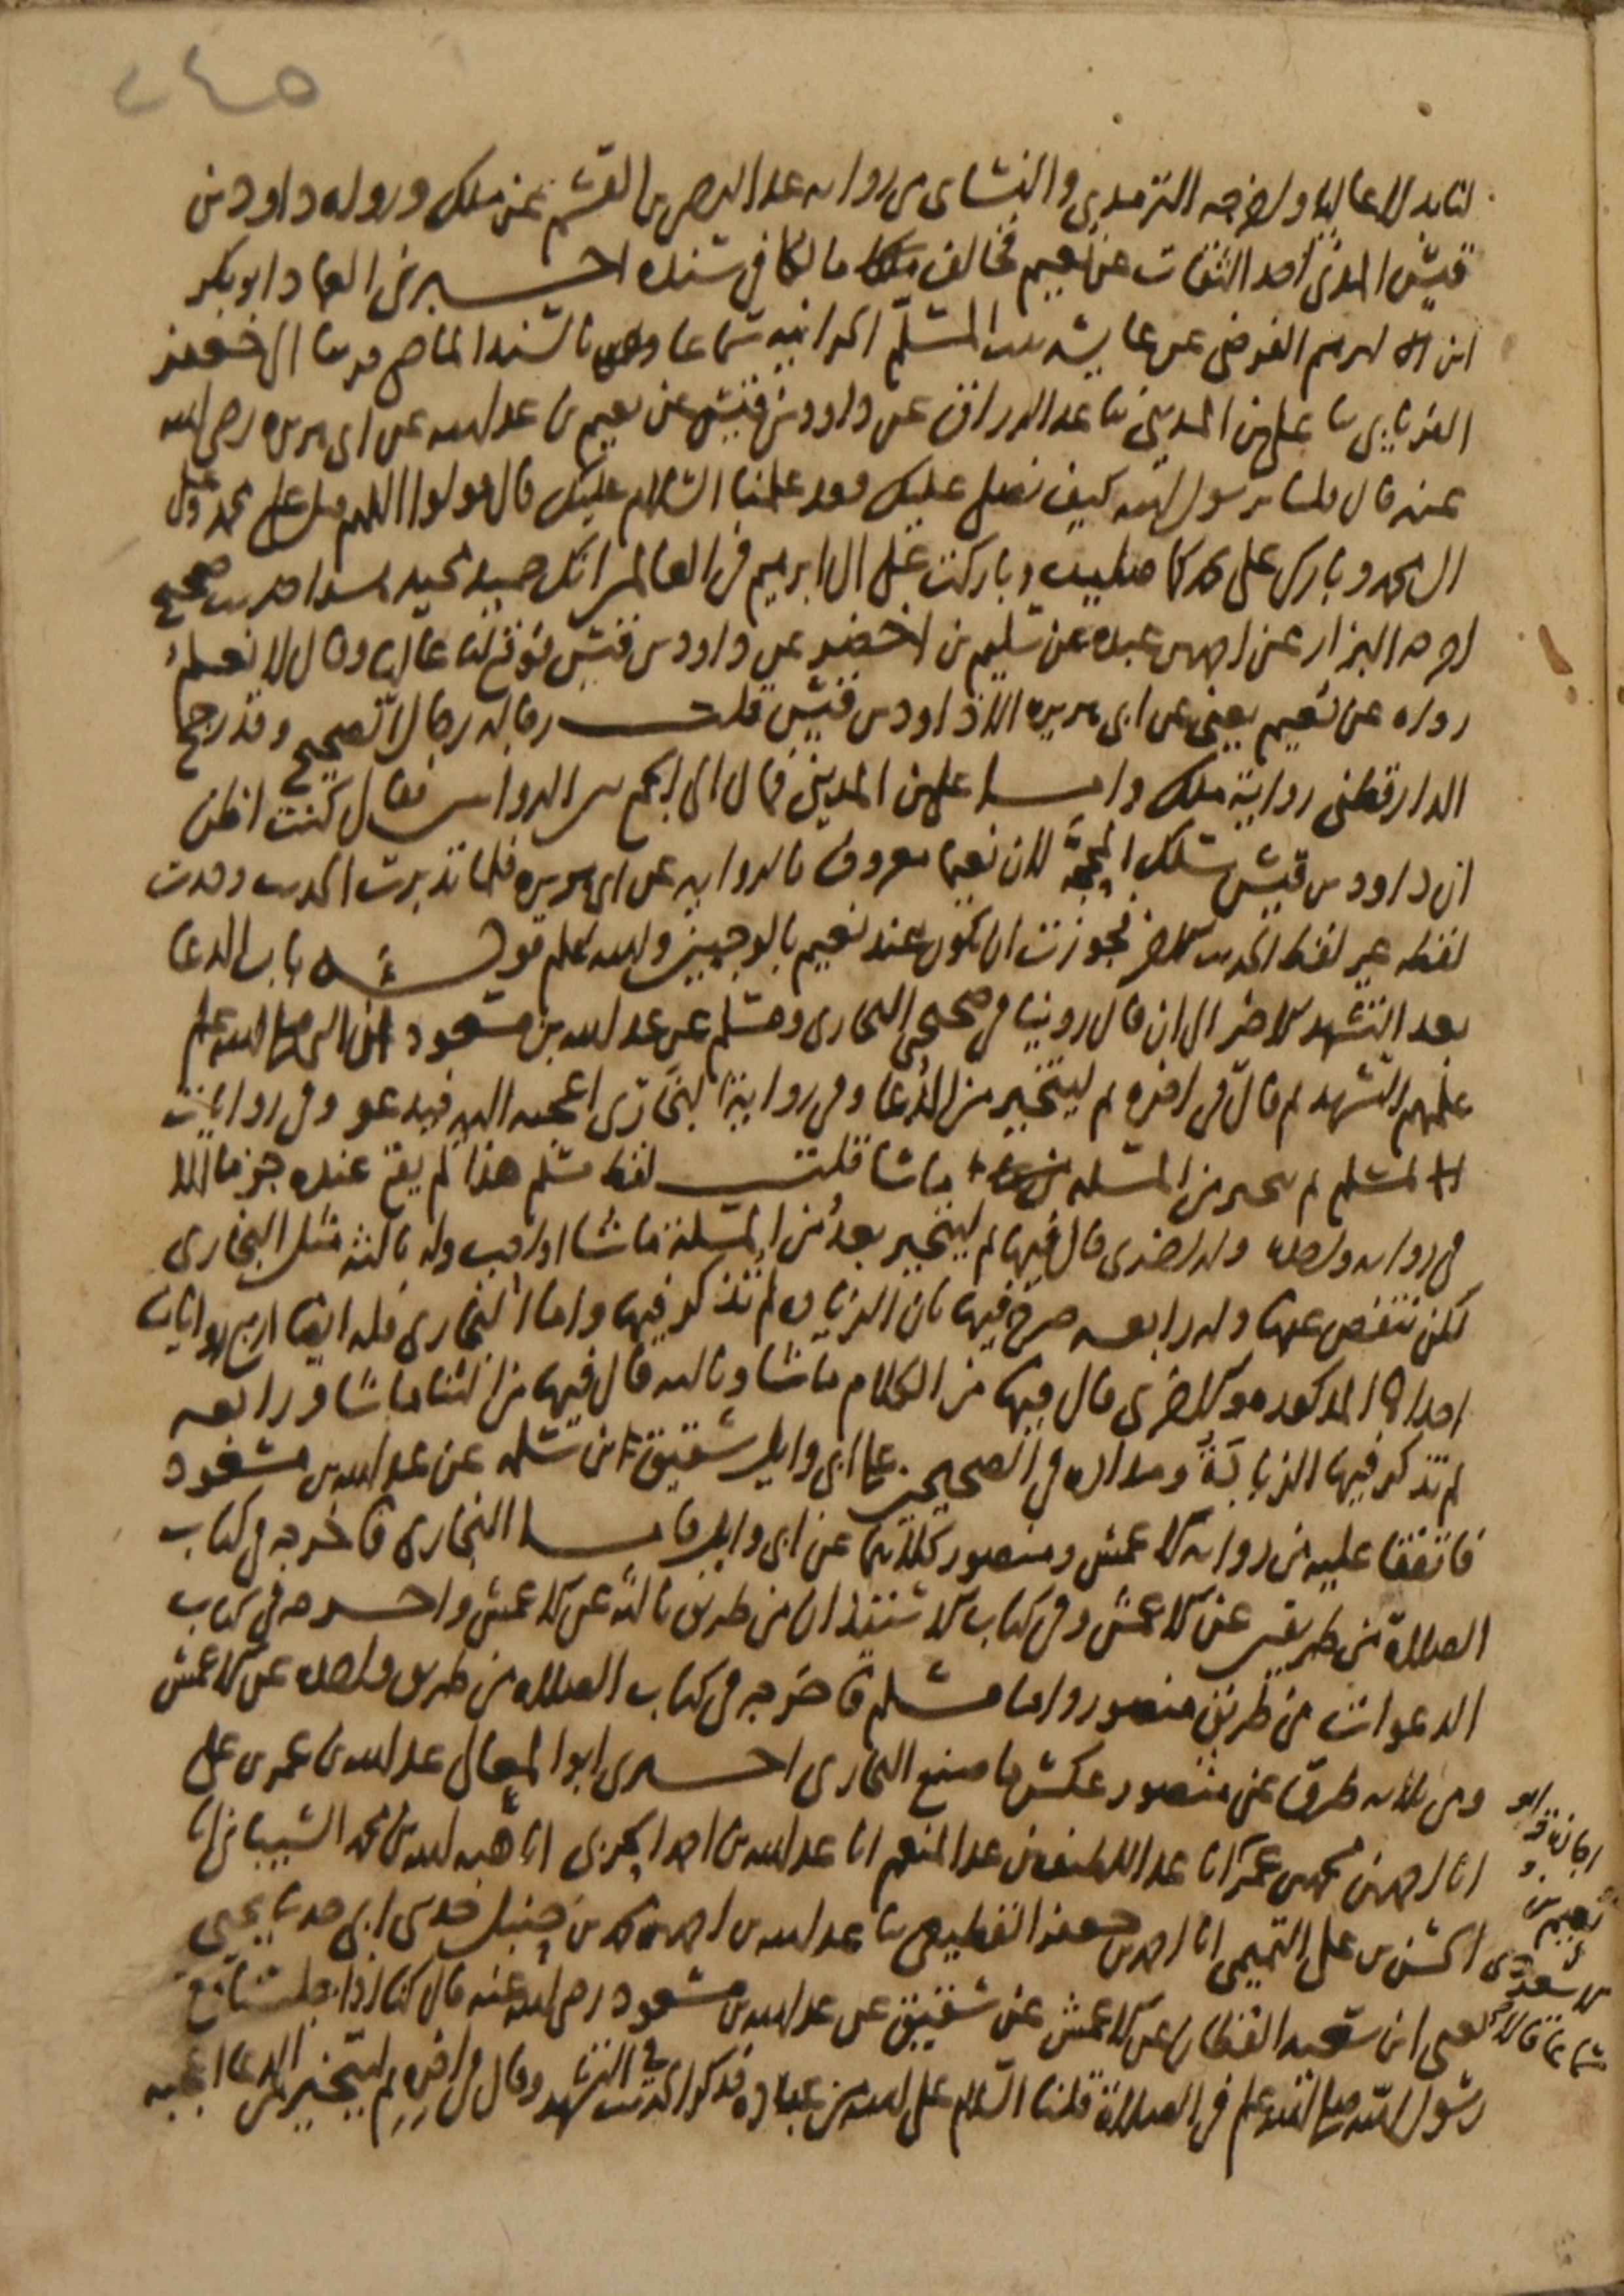 ٢٤٥
لنا بدلا عاليا واخرجه الترمذي والنساي من رواية عبد الرحمن بن القسم عن ملك ورواه داود بن
قيس المدني احد الثقات عن نعيم فخالف مالكا في سنده اخبرني العماد ابو بكر
ابن ابراهيم الفرضي عن عايشة بنت المسلم الحرانية سماعا بالسند الماضي قريبا الى جعفر
الفريابي ثنا علي بن المديني ثنا عبد الرزاق عن داود بن قيس عن نعيم بن عبد الله عن ابي هريرة رضي الله
عنه قال قلنا يرسول الله كيف نصلي عليك وقد علمنا السلام عليك قال قولوا اللهم صل على محمد وعلى
ال محمد وبارك على محمد كما صليت وباركت على ال ابرهيم في العالمين انك حميد مجيد هذا حديث صحيح
اخرجه البزار عن احمد بن عبدة عن سليم بن اخضر عن داود بن قيس فوقع لنا عاليا وقال لا نعلم
رواه عن نعيم يعني عن ابي هريرة الا داود بن قيس قلت رجاله رجال الصحيح وقد رجح
الدارقطني رواية ملك واما علي بن المديني فمال الى الجمع بين الروايتين فقال كنت اظن
ان داود بن قيس سلك المحجة لان نعيما معروف بالرواية عن ابي هريرة فلما تدبرت الحديث وجدت
لفظه غير لفظ الحديث الاخر فجوزت ان يكون عند نعيم بالوجهين والله اعلم قوله باب الدعا
بعد التشهد الاخر الى ان قال روينا في صحيحي البخاري ومسلم عن عبد الله بن مسعود ان النبي صلى الله عليه
علمهم التشهد ثم قال في اخره ثم ليتخير من الدعا وفي رواية البخاري اعجبه اليه فيدعو وفي روايات
لمسلم ثم يتخير من المسلة ما شا قلت لفظ مسلم هذا لم يقع عنده جزما الا
في رواية واحدة وله اخرى قال فيها ثم ليتخير بعد من المسلة ما شا او احب وله ثالثة مثل البخاري
لكن تنقص عنها وله رابعة صرح فيها بان الزيادة لم تذكر فيها واما البخاري فله ايضا اربع روايات
احداها المذكورة والاخرى قال فيها من الكلام ما شا وثالثة قال فيها من الثنا ما شا ورابعة
لم تذكر فيها الزيادة ومداره في الصحيحين على ابي وايل شقيق بن سلمة عن عبد الله بن مسعود
فاتفقا عليه من رواية الاعمش ومنصور كلاهما عن ابي وايل فاما البخاري فاخرجه في كتاب
الصلاة من طريقين عن الاعمش وفي كتاب الاستيذان من طريق ثالثة عن الاعمش واخرجه في كتاب
الدعوات من طريق منصور واما مسلم فاخرجه في كتاب الصلاة من طريق واحدة عن الاعمش
ومن ثلاثة طرق عن منصور عكس ما صنع البخاري اخبرني ابو المعالي عبد الله بن عمر بن علي
انا احمد بن محمد بن عمر انا عبد اللطيف بن عبد المنعم انا عبد الله بن احمد الحربي انا هبة الله بن محمد الشيباني انا
الحسن بن علي التميمي انا احمد بن جعفر القطيعي ثنا عبد الله بن احمد بن محمد بن حنبل حدثني ابي حدثنا يحيى
يعني ابن سعيد القطان عن الاعمش عن شقيق عن عبد الله بن مسعود رضي الله عنه قال كنا اذا جلسنا مع
رسول الله صلى الله عليه في الصلاة قلنا السلام على الله من عباده فذكر الحديث في التشهد وقال في اخره ثم ليتخير من الدعا اعجبه
ابو
نعيم بن
سعد
سماعا قالا